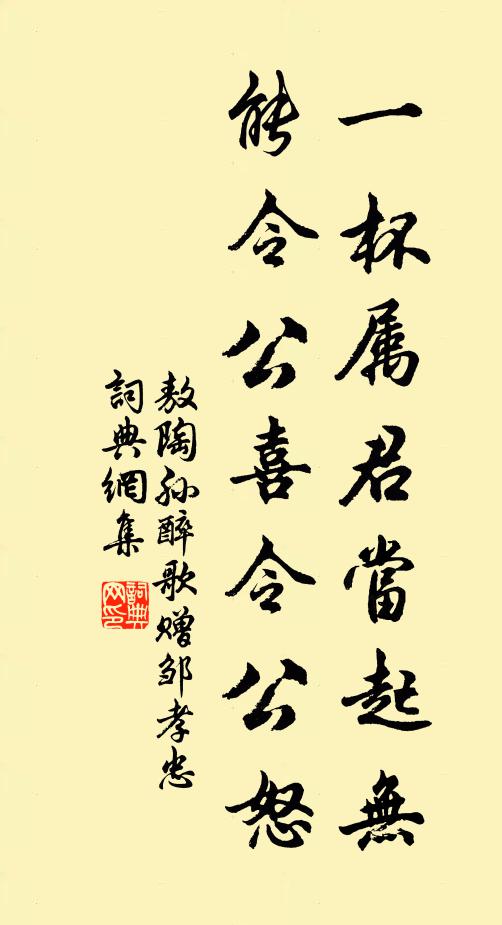 一杯属君當起無
能令公喜令公怒
敖陶孙醉歌赠邹孝忠
詞典網集
詞典网印